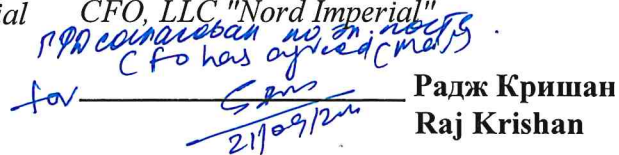 ial CFO, LLC "Nord Imperial"
согласован по эл. почте.
CFO has agreed (mail)
for Радж Кришан
21/09/ Raj Krishan